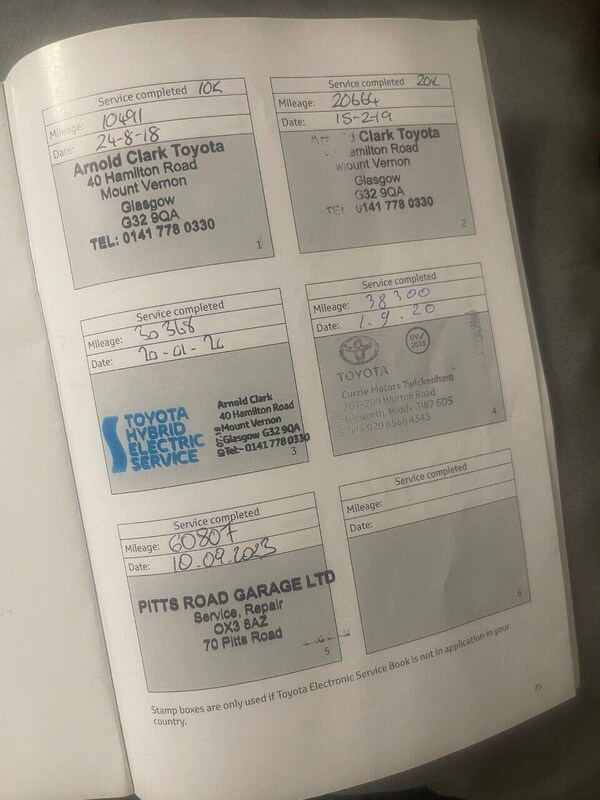 Service completed 10K
Mileage: 10491
Date: 24-8-18
Arnold Clark Toyota
40 Hamilton Road
Mount Vernon
Glasgow
G32 9QA
TEL: 0141 778 0330
1
Service completed 20K
Mileage: 20664
Date: 15-2-19
Clark Toyota
amilton Road
Mount Vernon
Glasgow
G32 9QA
TEL: 0141 778 0330
2
Service completed
Mileage: 30368
Date: 20-01-20
TOYOTA
HYBRID
ELECTRIC
SERVICE
Arnold Clark
40 Hamilton Road
Mount Vernon
Glasgow G32 9QA
Tel:- 0141 778 0330
3
Service completed
Mileage: 38300
Date: 1.9.20
TOYOTA
Currie Motors Twickenham
207-209 Worton Road
Isleworth, Middx TW7 6DS
Tel:- 020 8568 4343
4
Service completed
Mileage: 60807
Date: 10.09.2023
PITTS ROAD GARAGE LTD
Service, Repair
OX3 8AZ
70 Pitts Road
5
Service completed
Mileage:
Date:
6
Stamp boxes are only used if Toyota Electronic Service Book is not in application in your
country.
25